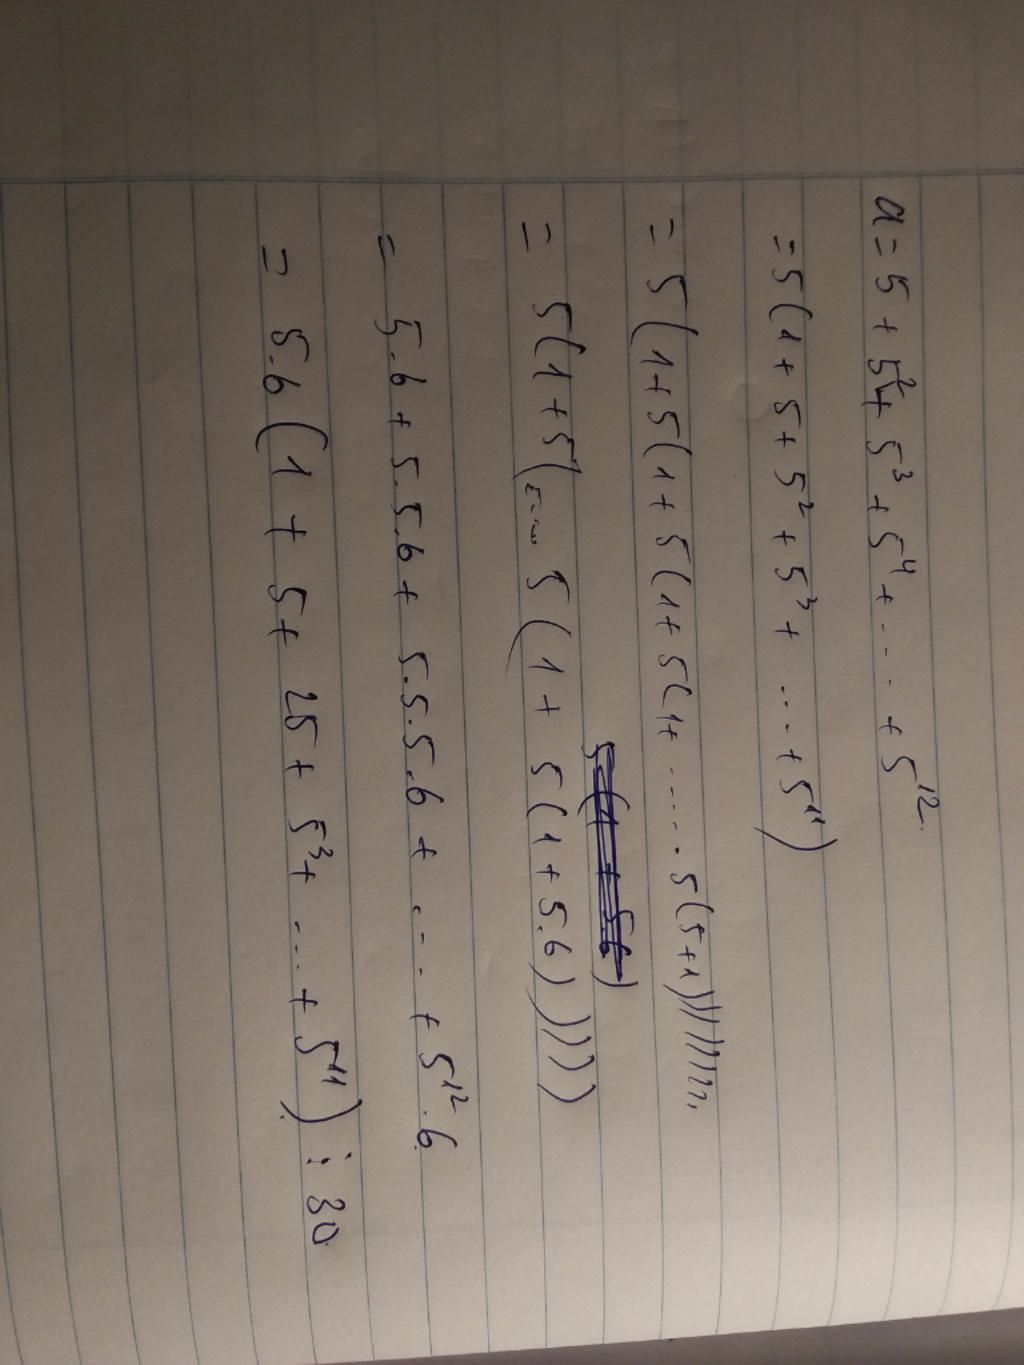 a = 5 + 5² + 5³ + 5⁴ + .... + 5¹²
= 5(1 + 5 + 5² + 5³ + .... + 5¹¹)
= 5(1+5(1+5(1+5(1+ ..... 5(5+1)))))))
= 5(1+5(.... 5(1+ 5(1+5.6)))))
= 5.6 + 5.5.6 + 5.5.5.6 + .... + 5¹².6
= 5.6(1 + 5 + 25 + 5³ + .... + 5¹¹) ⋮ 30